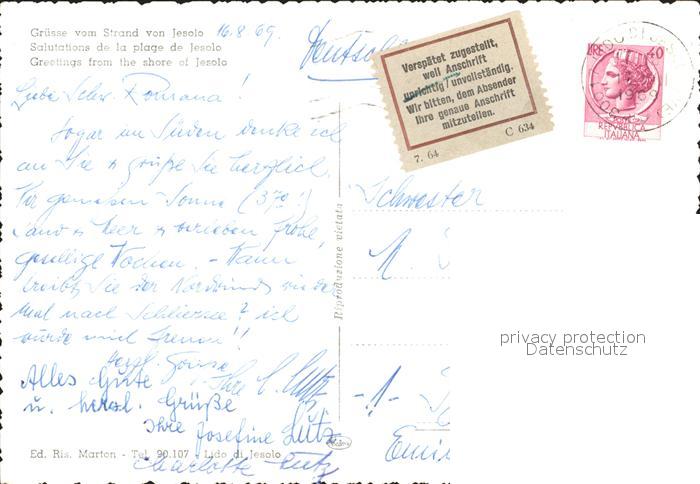 Grüsse vom Strand von Jesolo 16.8.69.
Salutations de la plage de Jesolo
Greetings from the shore of Jesolo
Verspätet zugestellt,
weil Anschrift
unrichtig / unvollständig.
Wir bitten, dem Absender
Ihre genaue Anschrift
mitzuteilen.
7. 64 C 634
LIRE 40
REPVBBLICA
ITALIANA
Liebe Schw. Romana!
Sogar im Süden denke ich
an Sie & grüße Sie herzlich.
Wir genießen Sonne (37°!)
Sand & Meer & verleben frohe,
gesellige Wochen. - Wann
treibt Sie der Nordwind wieder
mal nach Schliersee? ich
würde mich freuen!!
Herzl. Grüsse
Ihre C. Lutz
Alles Gute
u. herzl. Grüße
Ihre Josefine Lutz
Charlotte Lutz
Riproduzione vietata
Schwester
-1-
Ed. Ris. Marton - Tel. 90.107 - Lido di Jesolo
privacy protection
Datenschutz